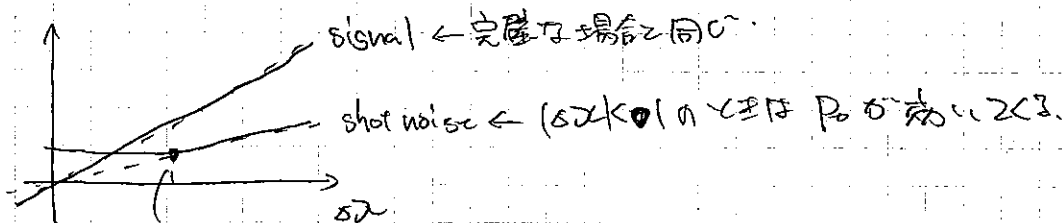 signal ← 完璧な場合と同じ.
shot noise ← |δx|<●| のときは P₀ が効いてくる.
δx